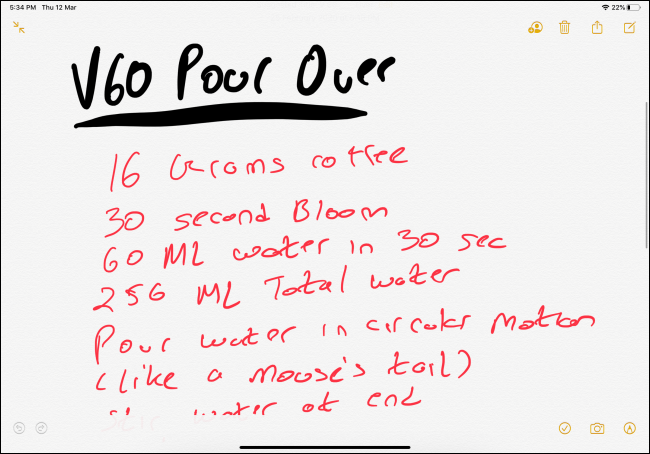 5:34 PM Thu 12 Mar
22%
V60 Pour Over
16 Grams coffee
30 second Bloom
60 ML water in 30 sec
256 ML Total water
Pour water in circular Motion
(like a Mouse's tail)
water at end